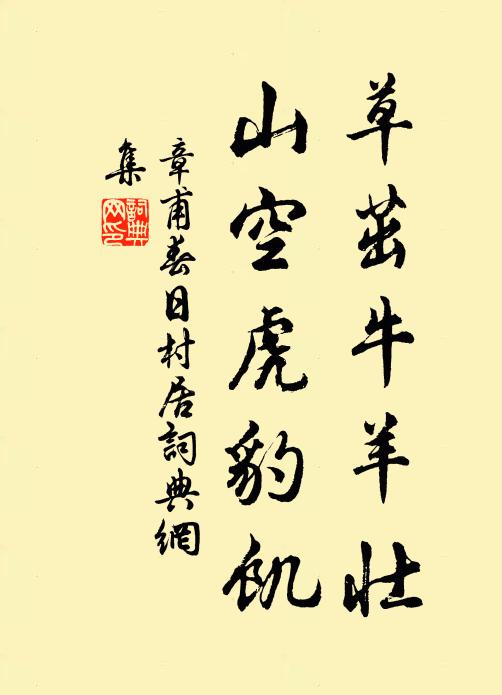 草茁牛羊壮
山空虎豹飢
章甫春日村居詞典網
集
詞典
网印